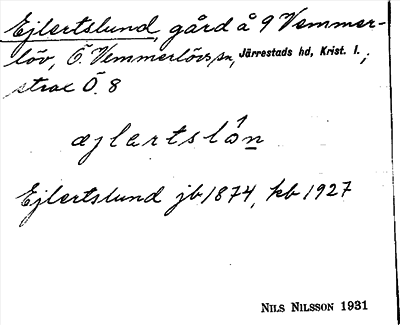 Ejlertslund, gård å 9 Vemmer-
löv, Ö. Vemmerlövs sn, Järrestads hd, Krist. l.;
strax Ö. 8
æjlertslón
Ejlertslund jb 1874, kb 1927
NILS NILSSON 1931